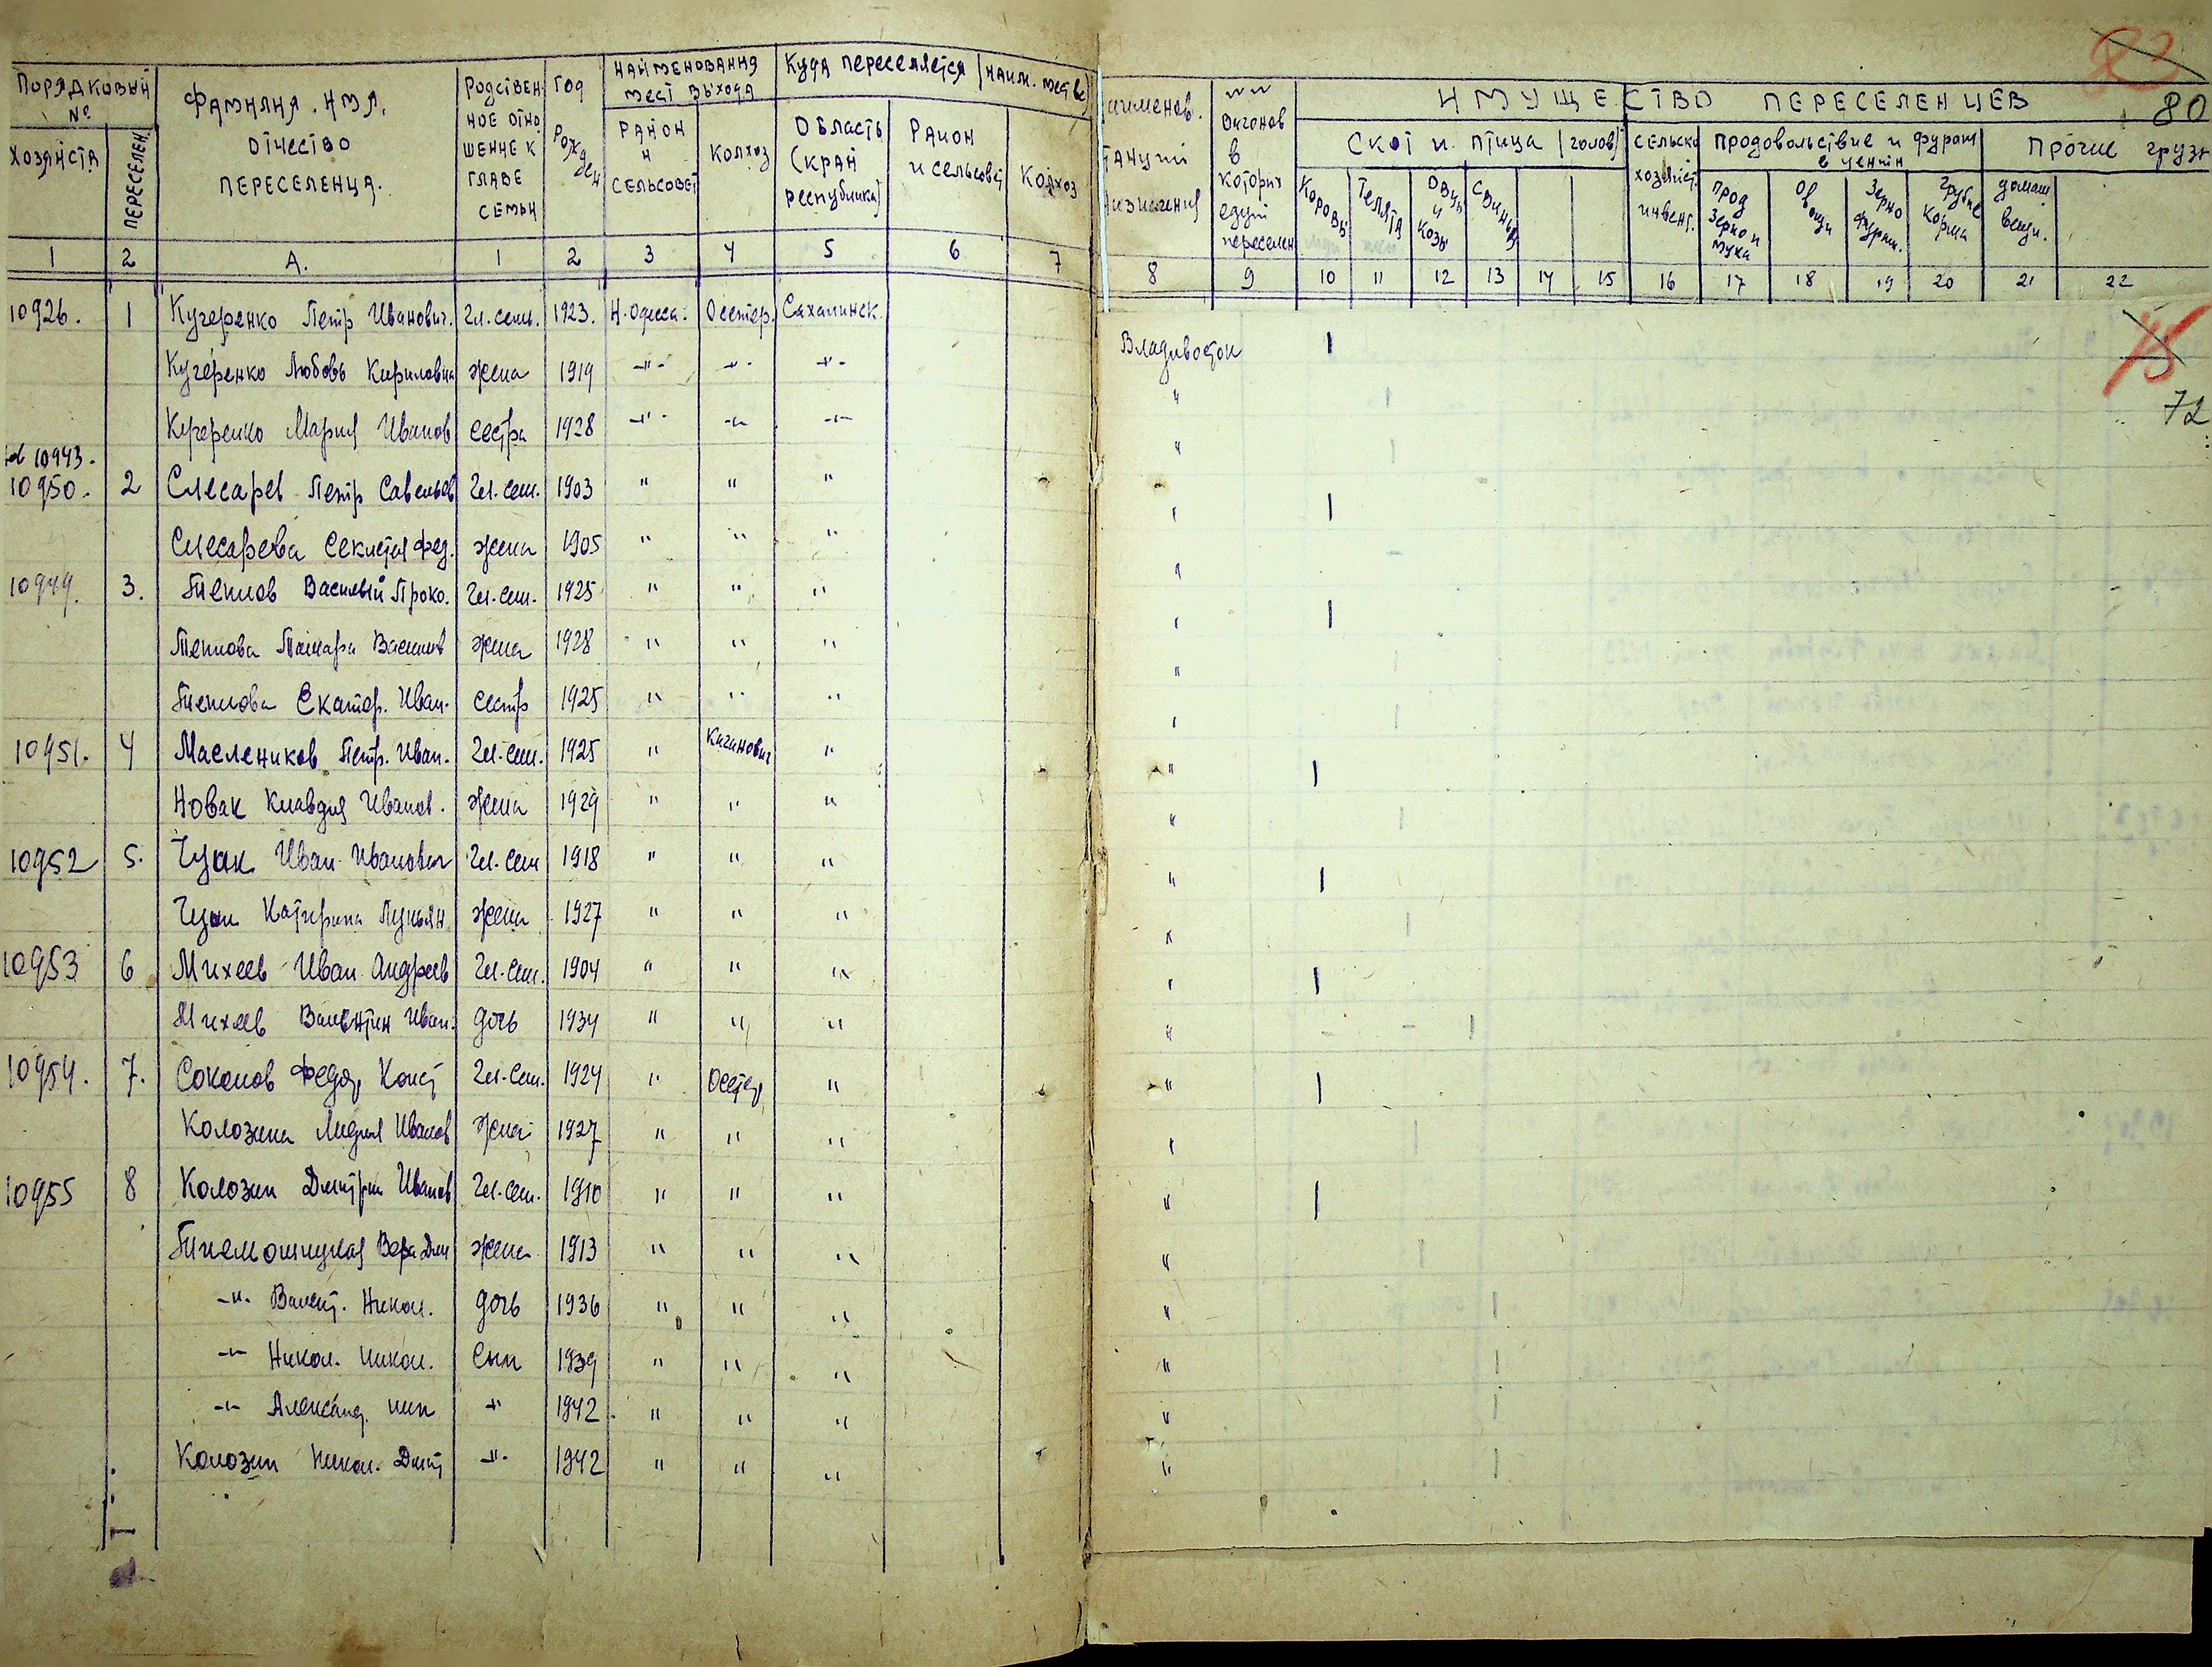 83
80
Порядковый №
Фамилия, имя, отчество переселенца.
Родственное отношение к главе семьи
Год рожден
Наименования мест выхода
Куда переселяется (наим. места)
Хозяйста
Переселен.
Район и сельсовет
Колхоз
Область (край республика)
Район и сельсовет
Колхоз
1 2 А. 1 2 3 4 5 6 7
10926. 1 Кучеренко Петр Иванович. Гл. семь. 1923. Н. Одесса. Осетер. Сахалинск.
Кучеренко Любовь Кириловна жена 1919 -"- -"- -"-
Кучеренко Мария Иванов сестра 1928 -"- -"- -"-
10943.
10950. 2 Слесарев Петр Савельев Гл. сем. 1903 " " "
Слесарева Секлетия Фед. жена 1905 " " "
10949. 3. Теплов Василий Проко. Гл. сем. 1925 " " "
Теплова Тамара Васильев жена 1928 " " "
Теплова Екатер. Иван. сестр 1925 " " "
10951. 4 Маслеников Петр. Иван. Гл. сем. 1925 " Каганович "
Новак Клавдия Иванов. жена 1929 " " "
10952 5. Иван Иванович Гл. сем 1918 " " "
жена 1927 " " "
10953 6 Михеев Иван Андреев Гл. сем. 1904 " " "
Михеев Валентин Иван. дочь 1934 " " "
10954. 7. Соколов Федор Конст Гл. сем. 1924 " Осетер "
Колозина Лидия Иванов жена 1927 " " "
10955 8 Колозин Дмитрий Иванов Гл. сем. 1910 " " "
Вера Дми жена 1913 " " "
-"- Валент. Никол. дочь 1936 " " "
-"- Никол. Никол. сын 1939 " " "
-"- Александ. Ник -"- 1942 " " "
Колозин Никол. Дмит -"- 1942 " " "
Наименов. станции назначения
№№ вагонов в которых едут переселен
Имущество переселенцев
Скот и птица (голов)
Сельско хозяйст. инвент.
Продовольствие и фураж в центн
Прочие грузы
Коровы
Телята
Овцы и козы
Свиньи
Прод зерно и мука
Овощи
Зерно фураж.
Грубые корма
домаш. вещи.
8 9 10 11 12 13 14 15 16 17 18 19 20 21 22
Владивосток 1
" 1
" 1
72
" 1
" -
" 1
" 1
" 1
" 1
" 1
" 1
" 1
" 1
" - - 1
" 1
" 1
" 1
" 1
" 1
" 1
" 1
" 1